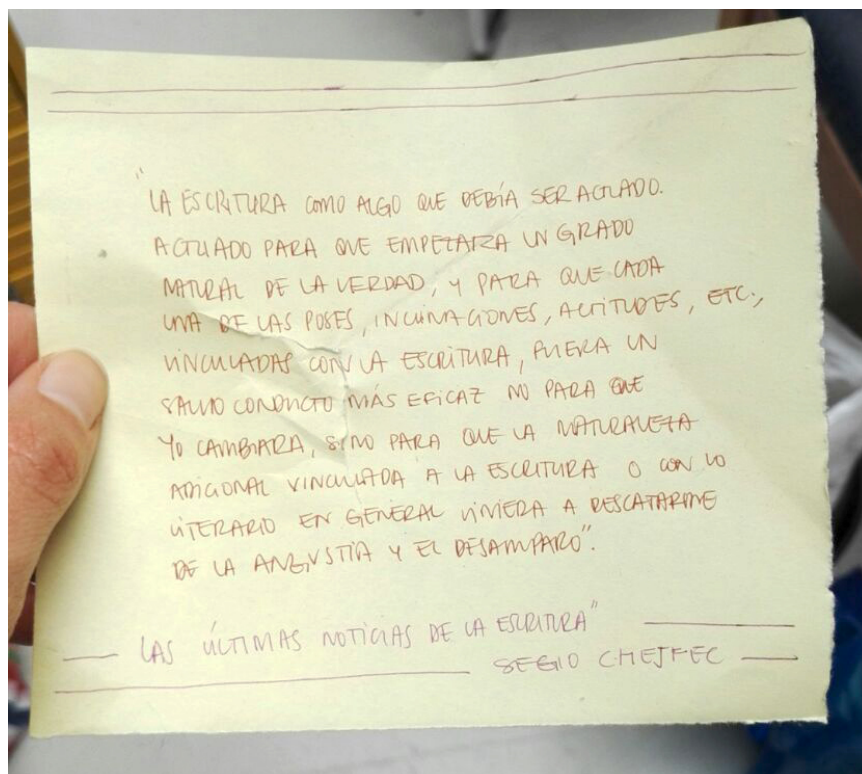 "LA ESCRITURA COMO ALGO QUE DEBÍA SER ACTUADO.
ACTUADO PARA QUE EMPEZARA UN GRADO
NATURAL DE LA VERDAD, Y PARA QUE CADA
UNA DE LAS POSES, INCLINACIONES, ACTITUDES, ETC.,
VINCULADAS CON LA ESCRITURA, FUERA UN
SALVO CONDUCTO MÁS EFICAZ NO PARA QUE
YO CAMBIARA, SINO PARA QUE LA NATURALEZA
ADICIONAL VINCULADA A LA ESCRITURA O CON LO
LITERARIO EN GENERAL VINIERA A RESCATARME
DE LA ANGUSTIA Y EL DESAMPARO".
LAS ÚLTIMAS NOTICIAS DE LA ESCRITURA"
SEGIO CHEJFEC